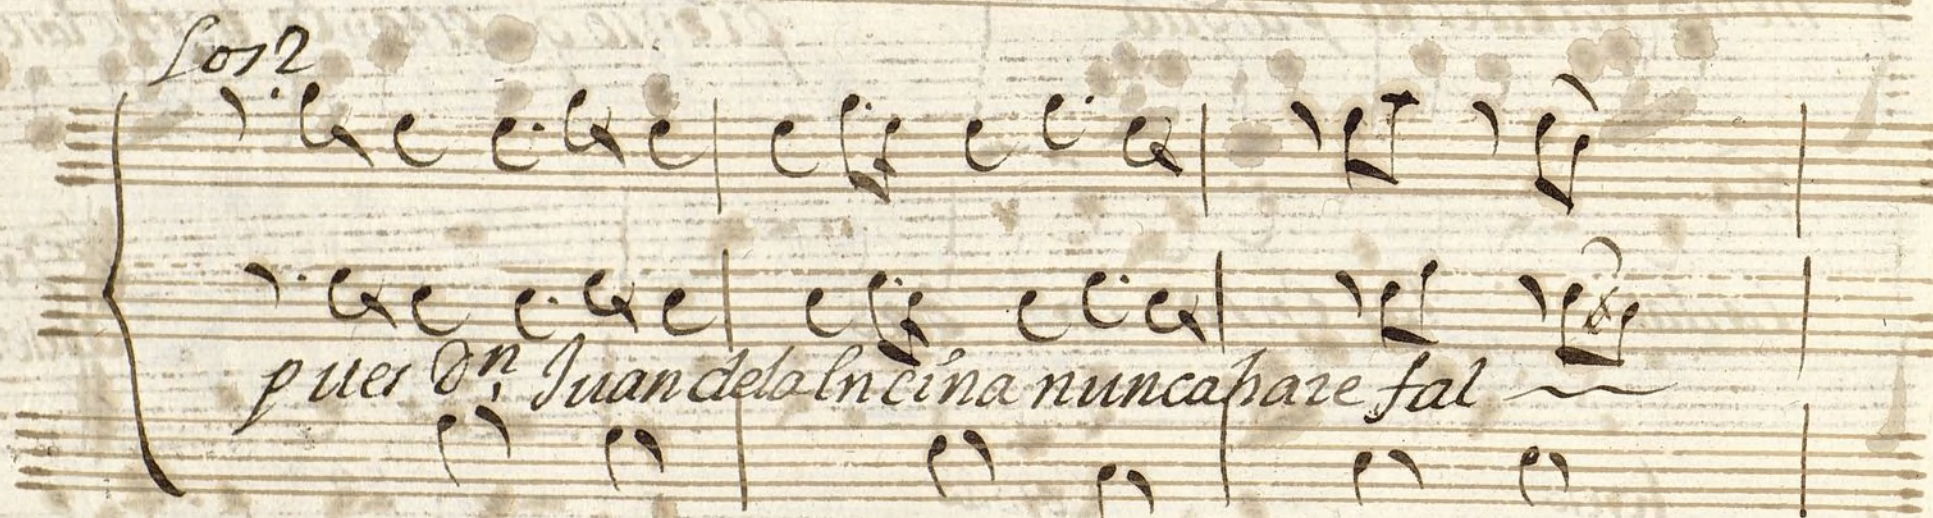 Los 2
pues Dn. Juan dela Encina nunca hare fal